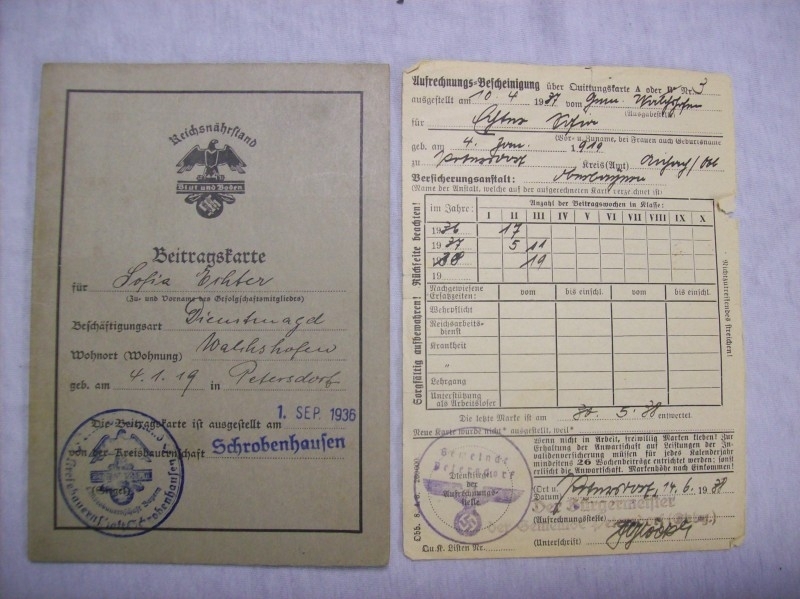 Reichsnährstand
Blut und Boden
Beitragskarte
für Sofia Echter
(Zu- und Vorname des Gefolgschaftsmitgliedes)
Beschäftigungsart Dienstmagd
Wohnort (Wohnung) Walchshofen
geb. am 4.1.19 in Petersdorf
Die Beitragskarte ist ausgestellt am 1. SEP. 1936
von der Kreisbauernschaft Schrobenhausen
Aufrechnungs-Bescheinigung über Quittungskarte A oder Nr. 3
ausgestellt am 10.4 1937 vom Gem. Walchshofen
(Ausgabestelle)
für Echter Sofie
(Vor- u. Zuname, bei Frauen auch Geburtsname)
geb. am 4. Jan. 1919
zu Petersdorf Kreis (Amt) Aichach/Obb
Versicherungsanstalt: Oberbayern
(Name der Anstalt, welche auf der aufgerechneten Karte verzeichnet ist)
Sorgfältig aufbewahren! Rückseite beachten!
im Jahre: Anzahl der Beitragswochen in Klasse:
I II III IV V VI VII VIII IX X
1936 17
1937 5 11
1938 19
19
Nachgewiesene Ersatzzeiten: vom bis einschl. vom bis einschl.
Wehrpflicht
Reichsarbeitsdienst
Krankheit
"
Lehrgang
Unterstützung als Arbeitsloser
Nichtzutreffendes streichen!
Die letzte Marke ist am 30. 5. 38 entwertet.
Neue Karte wurde nicht* ausgestellt, weil*
Wenn nicht in Arbeit, freiwillig Marken kleben! Zur
Erhaltung der Anwartschaft auf Leistungen der In-
validenversicherung müssen für jedes Kalenderjahr
mindestens 26 Wochenbeiträge entrichtet werden; dann
erlischt die Anwartschaft. Markenhöhe nach Einkommen!
Gemeinde
Petersdorf
Dienstsiegel
der
Aufrechnungs-
stelle
(Ort u. Datum) Petersdorf, 14.6. 1938
Der Bürgermeister
der Gemeinde
(Aufrechnungsstelle)
(Unterschrift)
Qu.K. Listen Nr.